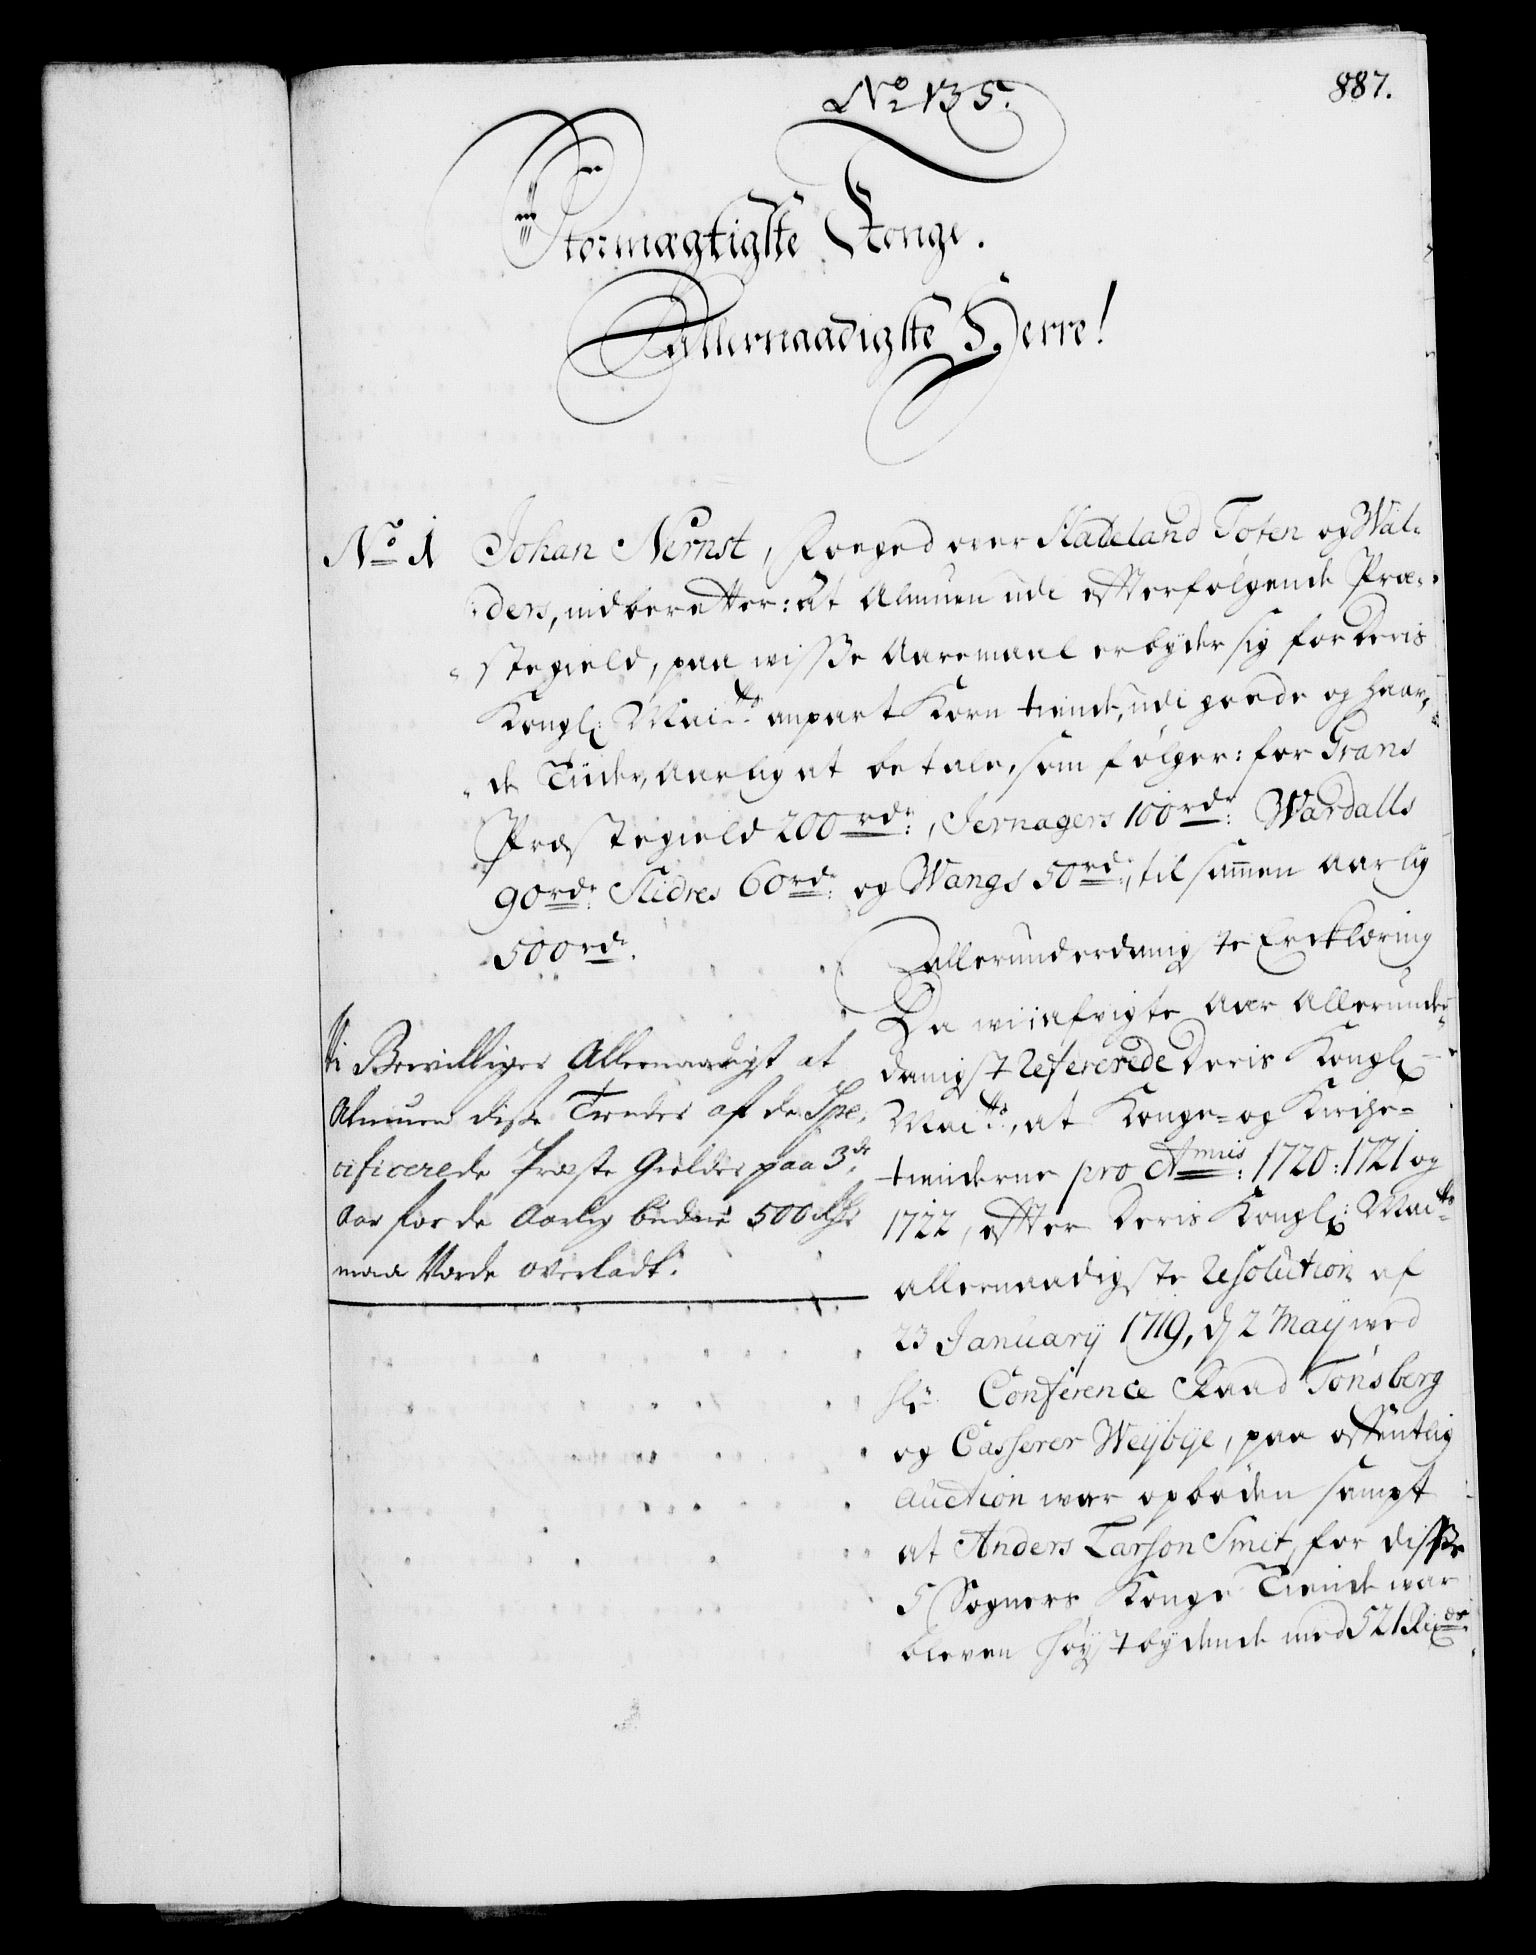 887.
No 135.
Stormægtigste Konge.
Allernaadigste Herre!
No 1 Johan Nernst, Foeged over Hadeland Toten og Wal-
ders, indberetter: at Almuen udi efterfølgende Præ-
stegield, paa wisse Aaremaal erbyder sig for Deris
Kongl: Maits: anpart Korn tiende, udi goede og haar-
de Tiider, Aarlig at betale, som følger: for Grans
Præstegield 200 rdr:, Jernagers 100 rdr: Wardalls
90 rdr: Slidres 60 rdr: og Wangs 50 rdr:, tilsammen aarlig
500 rdr.
Allerunderdanigste Erklæring
Da wi i afvigte Aar Allerunder-
danigst refererede Deris Kongl:
Maits:, at Konge- og Kirche-
tienderne pro Annis: 1720: 1721 og
1722, efter Deris Kongl: Maits:
allernaadigste Resolution af
23 January 1719, d 2 May wed
Conference Raad Tonsberg
og Casserer Weybye, paa offentlig
Auction war opbøden sampt
at Anders Larson Smit, for disse
5 Sogners Konge Tiende war
bleven høystbydende med 521 Rixdr.
Vi Bevilliger Allernaadigst at
Almuen disse Tiender af de Spe-
cificerede Præste Gielder paa 3de
Aar for de Aarlig budne 500 Rdr
maa Vorde overladt.